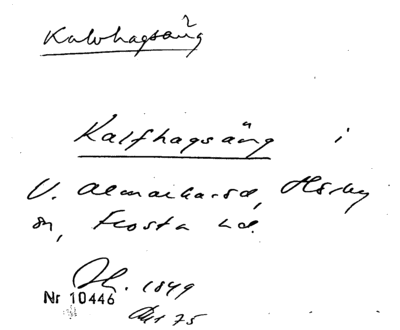 Kalvhagsäng
Kalfhagsäng i
V. Almarharad, Hörby
sn, Frosta hd.
Sk. 1849
Nr 10446
Akt 75